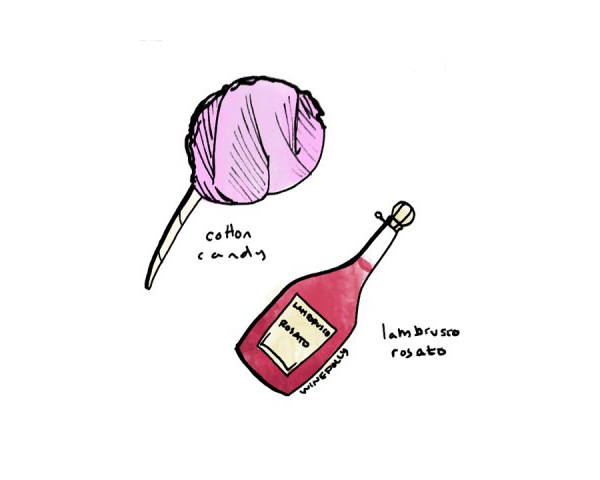 cotton
candy
LAMBRUSCO
ROSATO
lambrusco
rosato
WINEFOLLY